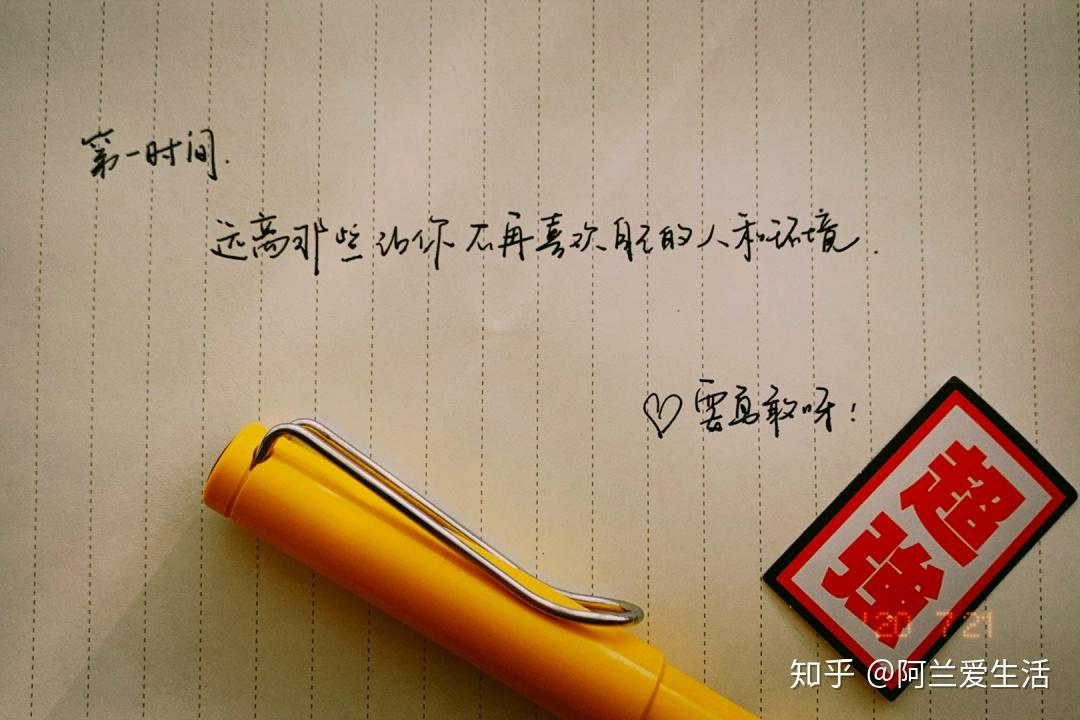 第一时间.
远离那些让你不再喜欢自己的人和环境.
♡要勇敢呀!
超強
'20 7 21
知乎 @阿兰爱生活